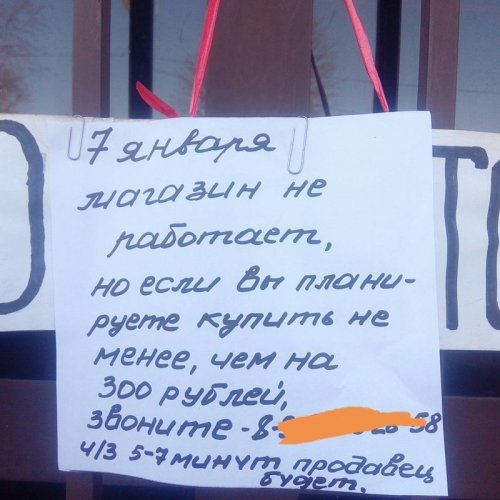 7 января
магазин не
работает,
но если вы плани-
руете купить не
менее, чем на
300 рублей,
звоните - 8-
58
ч/з 5-7 минут продавец
будет.